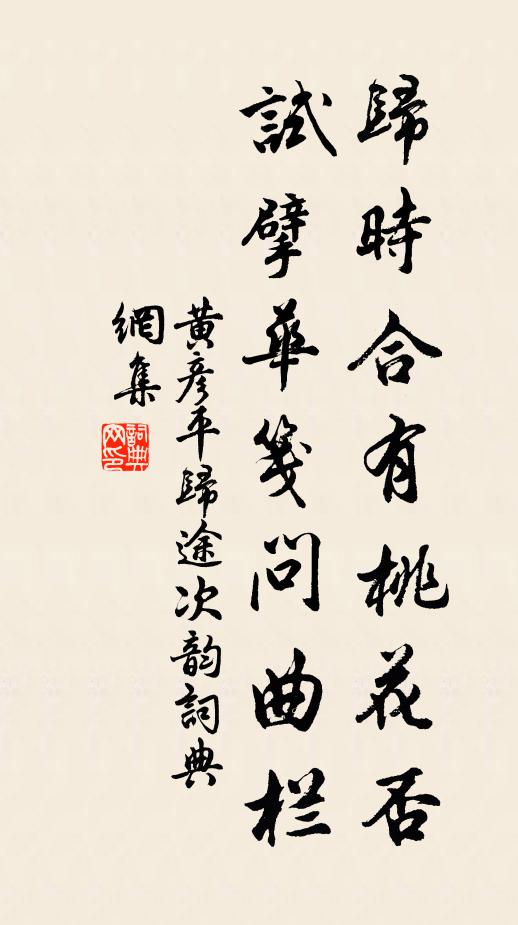 歸時合有桃花否
試擘華箋問曲栏
黃彦平歸途次韵詞典
網集
詞典
网印